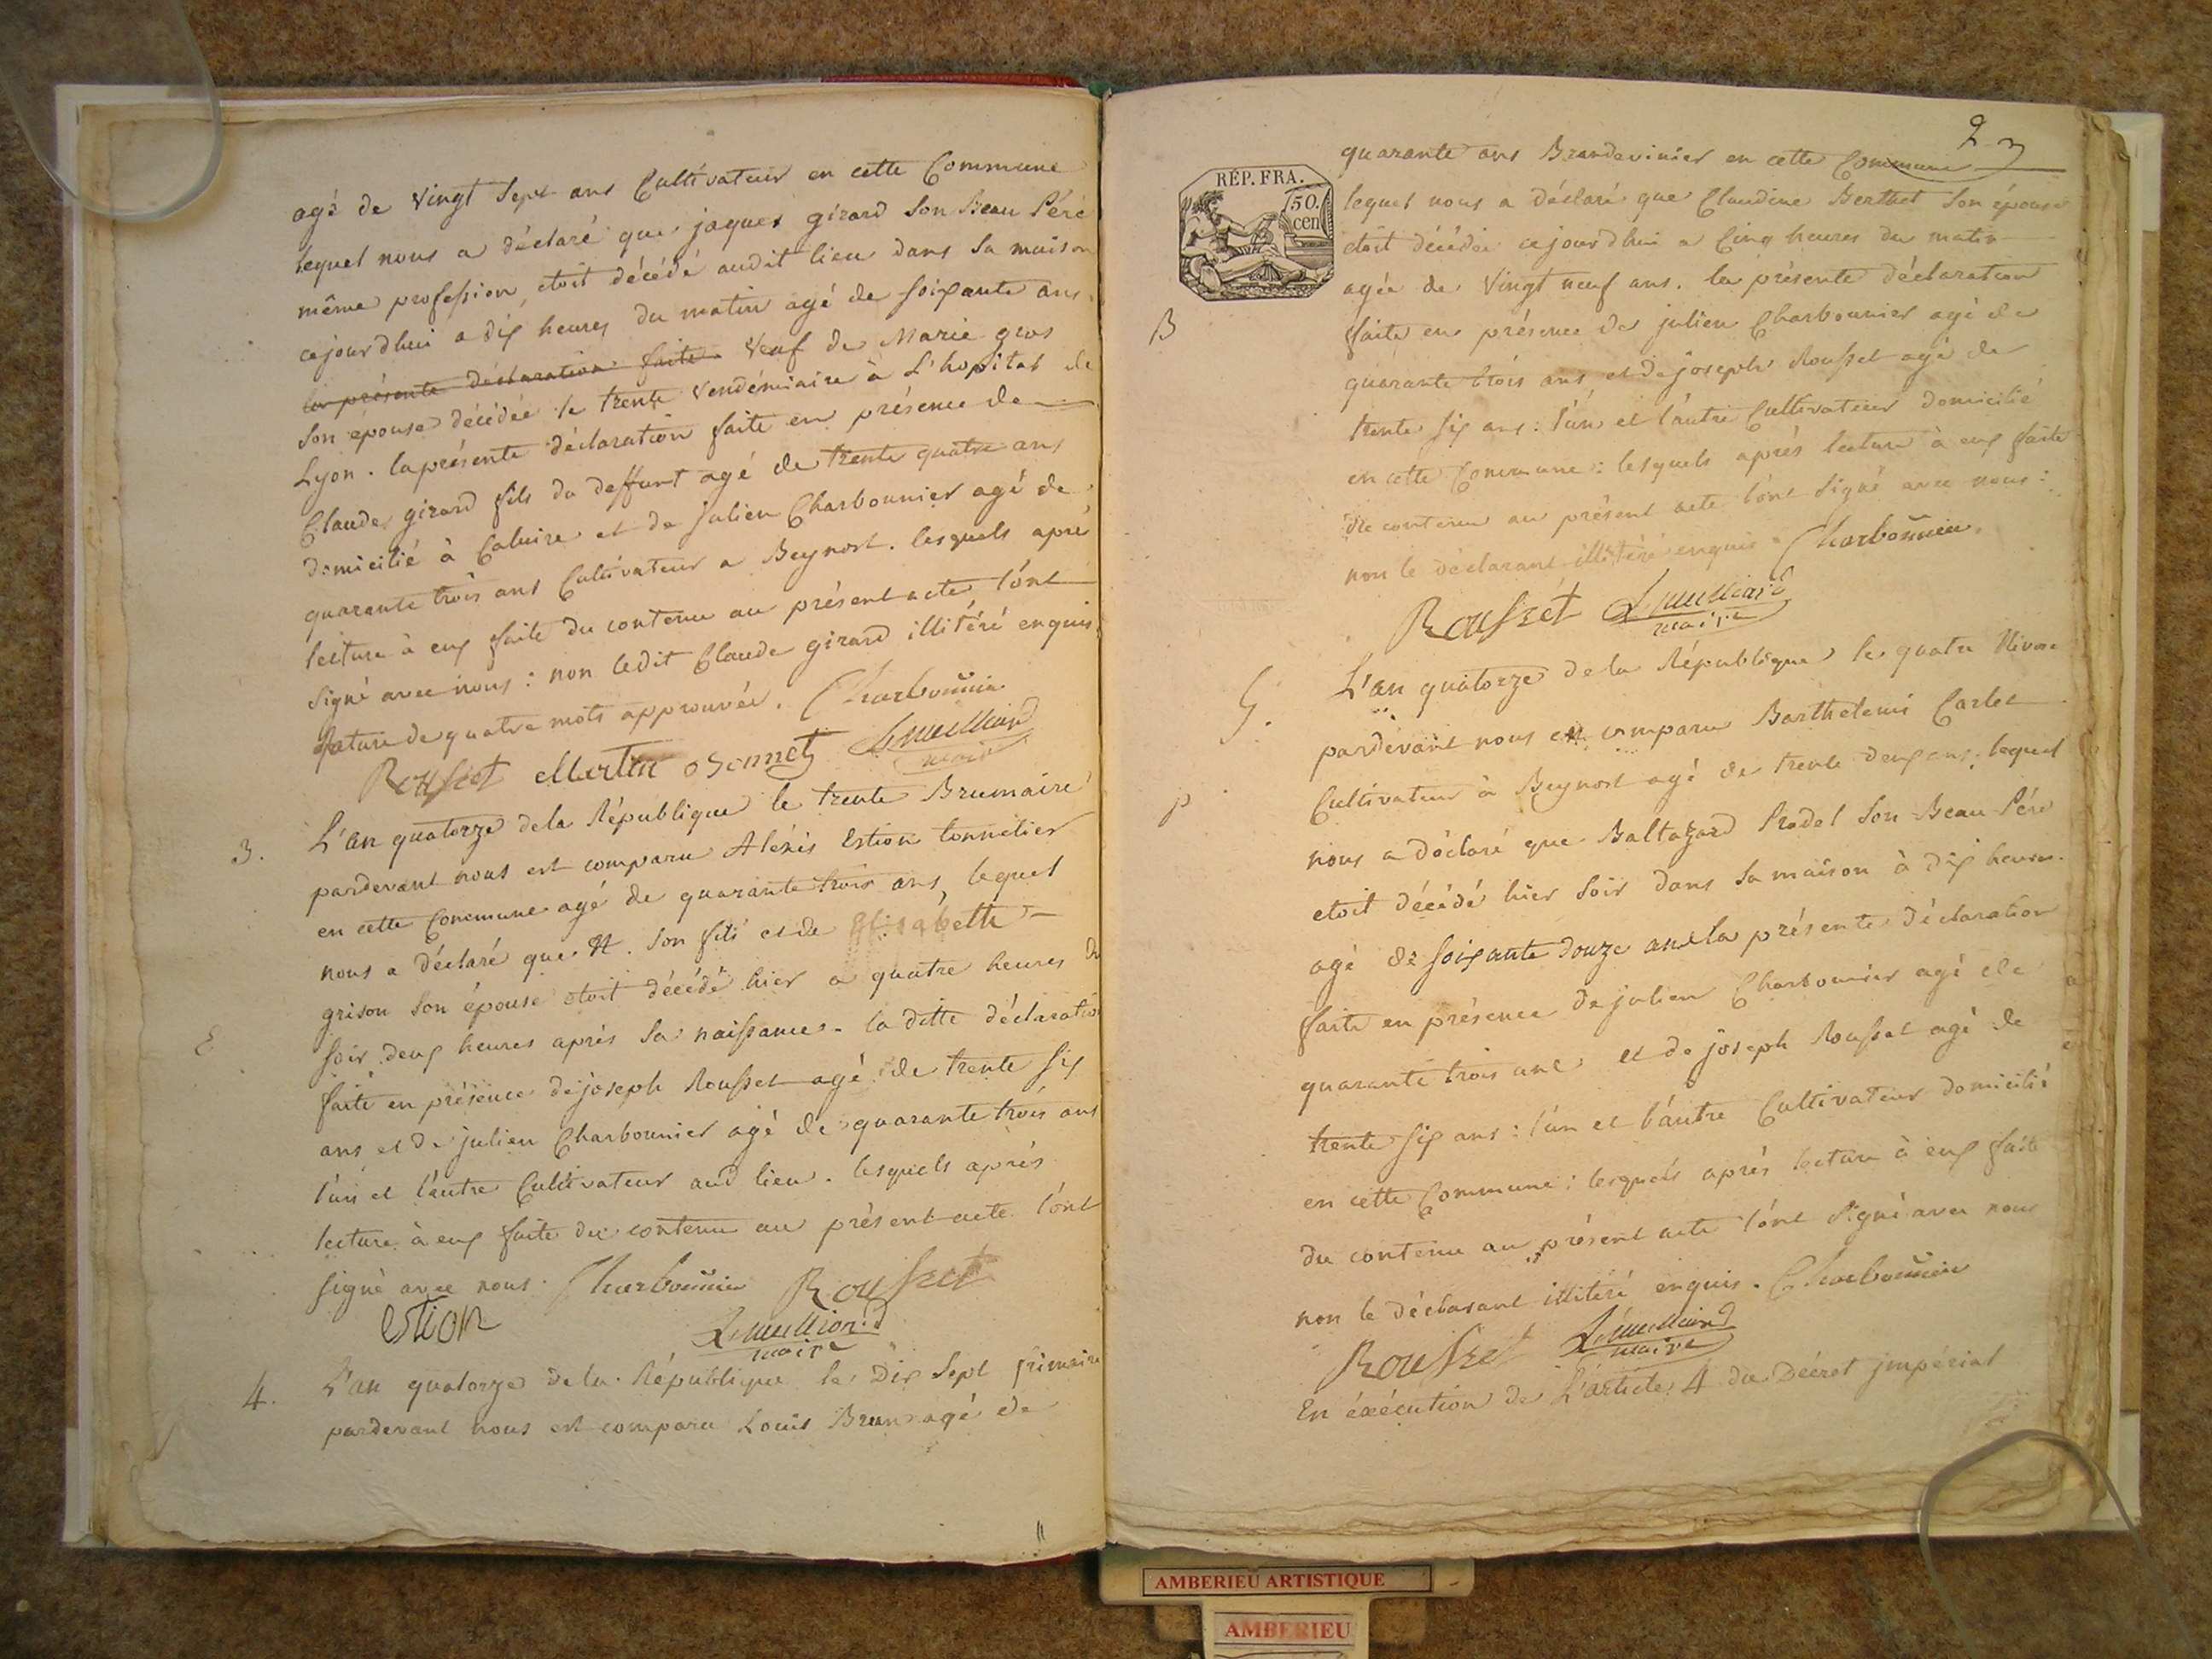 agé de vingt Sept ans Cultivateur en cette Commune
lequel nous a déclaré que jaques girard Son Beau Pére
même profession, etoit décédé audit lieu dans Sa maison
cejourdhui a dix heures du matin agé de soixante ans.
la présente déclaration faite Veuf de Marie gros
Son epouse décédée le trente Vendémiaire à L'hopital de
Lyon. laprésente déclaration faite en présence de
Claude girard fils du deffunt agé de trente quatre ans
domicilié à Caluire et de Julien Charbonnier agé de
quarante trois ans Cultivateur a Beynost. lesquels aprés
lecture à eux faite du contenu au présent acte l'ont
Signé avec nous : non ledit Claude girard illitéré enquis.
Rature de quatre mots approuvée. Charbonnier
Rousset Martin Bonnet
maire
3. L'an quatorze dela République le trente Brumaire
pardevant nous est comparu Aléxis Estion tonnelier
en cette Commune agé de quarante trois ans, lequel
nous a déclaré que N. Son fils et de Elisabette
grison Son épouse etoit décédé hier a quatre heures du
E
soir deux heures aprés Sa naissance. la ditte déclaration
faite en présence de joseph Rousset agé de trente six
ans et de julien Charbonnier agé de quarante trois ans
l'un et l'autre Cultivateur aud lieu. lesquels aprés
lecture à eux faite du contenu au présent acte l'ont
signé avec nous. Charbonnier Rousset
estion
maire
4. L'an quatorze dela République le Dix Sept frimaire
pardevant nous est comparu Louis Brun agé de
2
RÉP. FRA.
50.
cen
quarante ans Brandevinier en cette Commune
lequel nous a déclaré que Claudine Berthet Son épouse
etoit décédée cejourdhui a Cinq heures du matin
agée de Vingt neuf ans. la présente déclaration
B
faite en présence de julien Charbonnier agé de
quarante trois ans et de joseph Rousset agé de
trente six ans : l'un et l'autre Cultivateur Domicilié
en cette Commune : lesquels aprés lecture à eux faite
du contenu au présent acte l'ont Signé avec nous :
non le déclarant illitéré enquis. Charbonnier.
Rousset
maire
5. L'an quatorze de la République le quatre Nivose
pardevant nous est comparu Barthelemi Carlet
Cultivateur à Beynost agé de trente deux ans, lequel
P
nous a déclaré que Baltazard Pradel Son Beau Pére
etoit décédé hier Soir dans Sa maison à dix heures.
agé de soixante douze ans la présente déclaration
faite en présence de julien Charbonnier agé de
quarante trois ans et de joseph Rousset agé de
trente six ans : l'un et l'autre Cultivateur domicilié
en cette Commune : lesquels aprés lecture à eux faite
du contenu au présent acte l'ont Signé avec nous
non le déclarant illitéré enquis. Charbonnier
Rousset
maire
En éxécution de L'article 4 du Décret jmpérial
AMBERIEU ARTISTIQUE
AMBERIEU